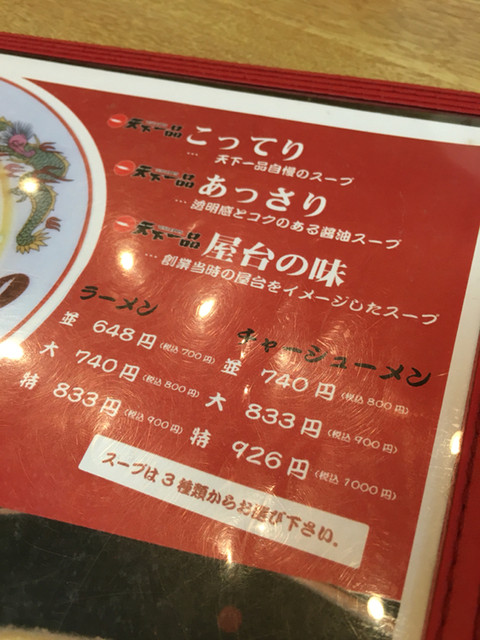 天下一品 こってり
… 天下一品自慢のスープ
天下一品 あっさり
… 透明感とコクのある醤油スープ
天下一品 屋台の味
… 創業当時の屋台をイメージしたスープ
ラーメン
並 648円 (税込700円)
大 740円 (税込800円)
特 833円 (税込900円)
チャーシューメン
並 740円 (税込800円)
大 833円 (税込900円)
特 926円 (税込1000円)
スープは3種類からお選び下さい。